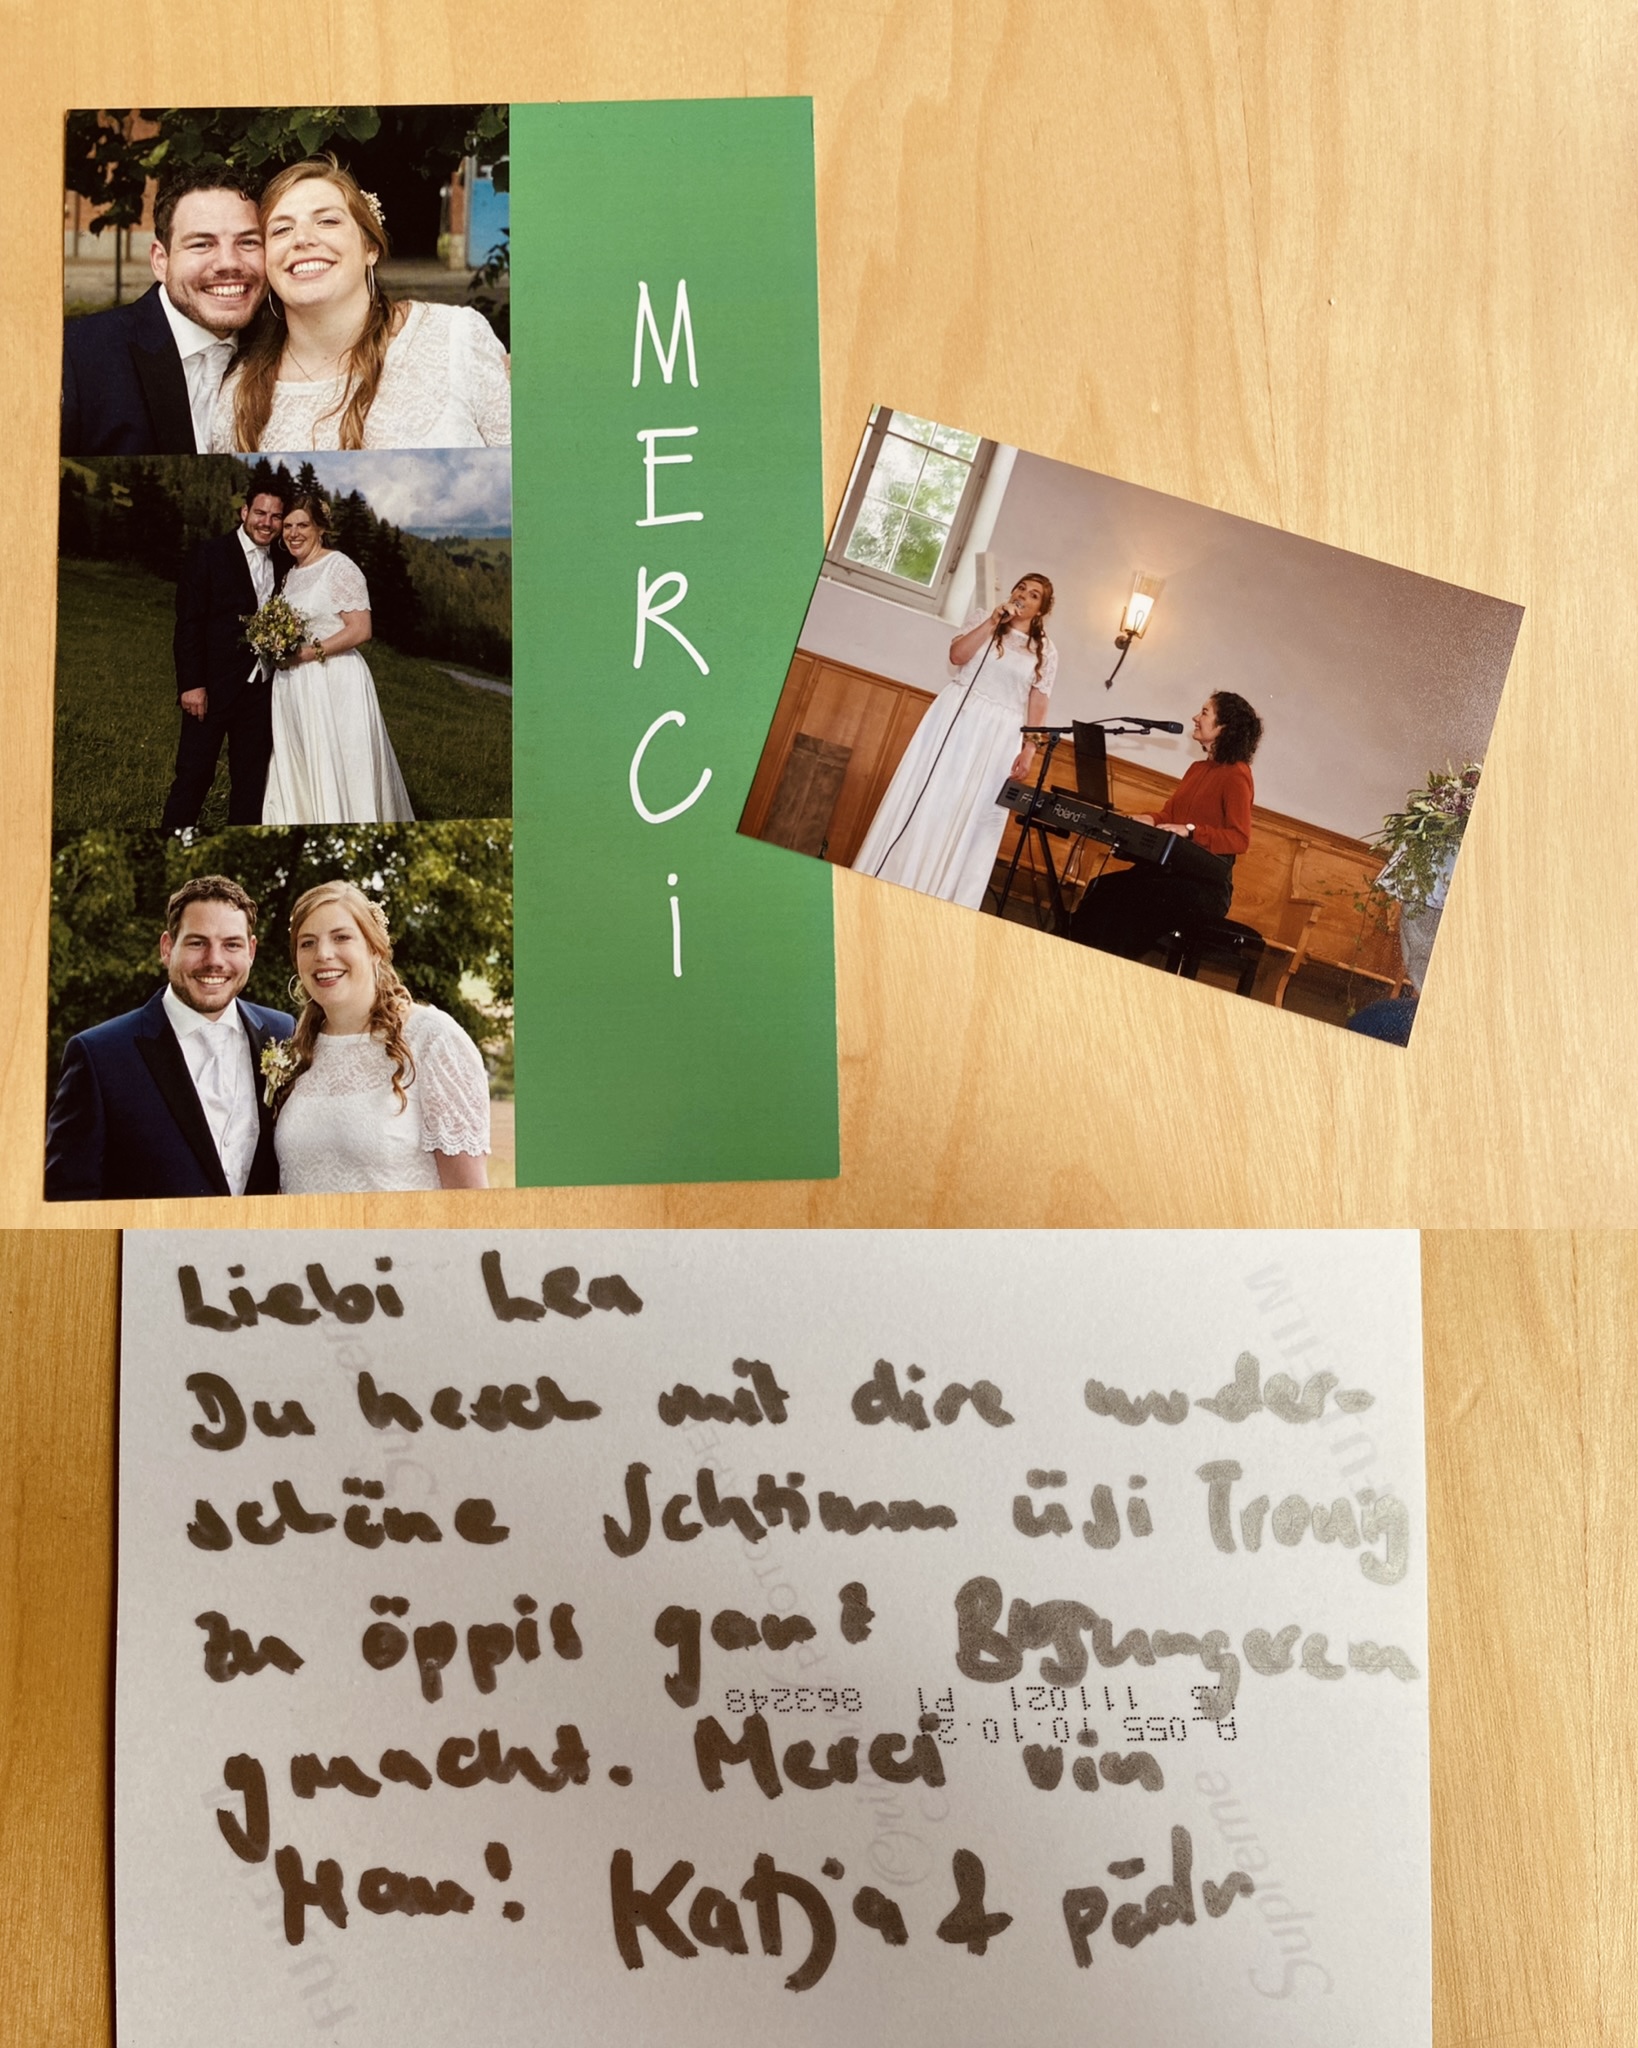 MERCi
Roland
Liebi Lea
Du hesch mit dire wunder-
schöne Schtimm üsi Trouig
zu öppis ganz Bsungerem
gmacht. Merci viu
Mau! Katja & Pädu
A_055 10.10.2
111021 P1 863248
Supreme
FUJIFILM